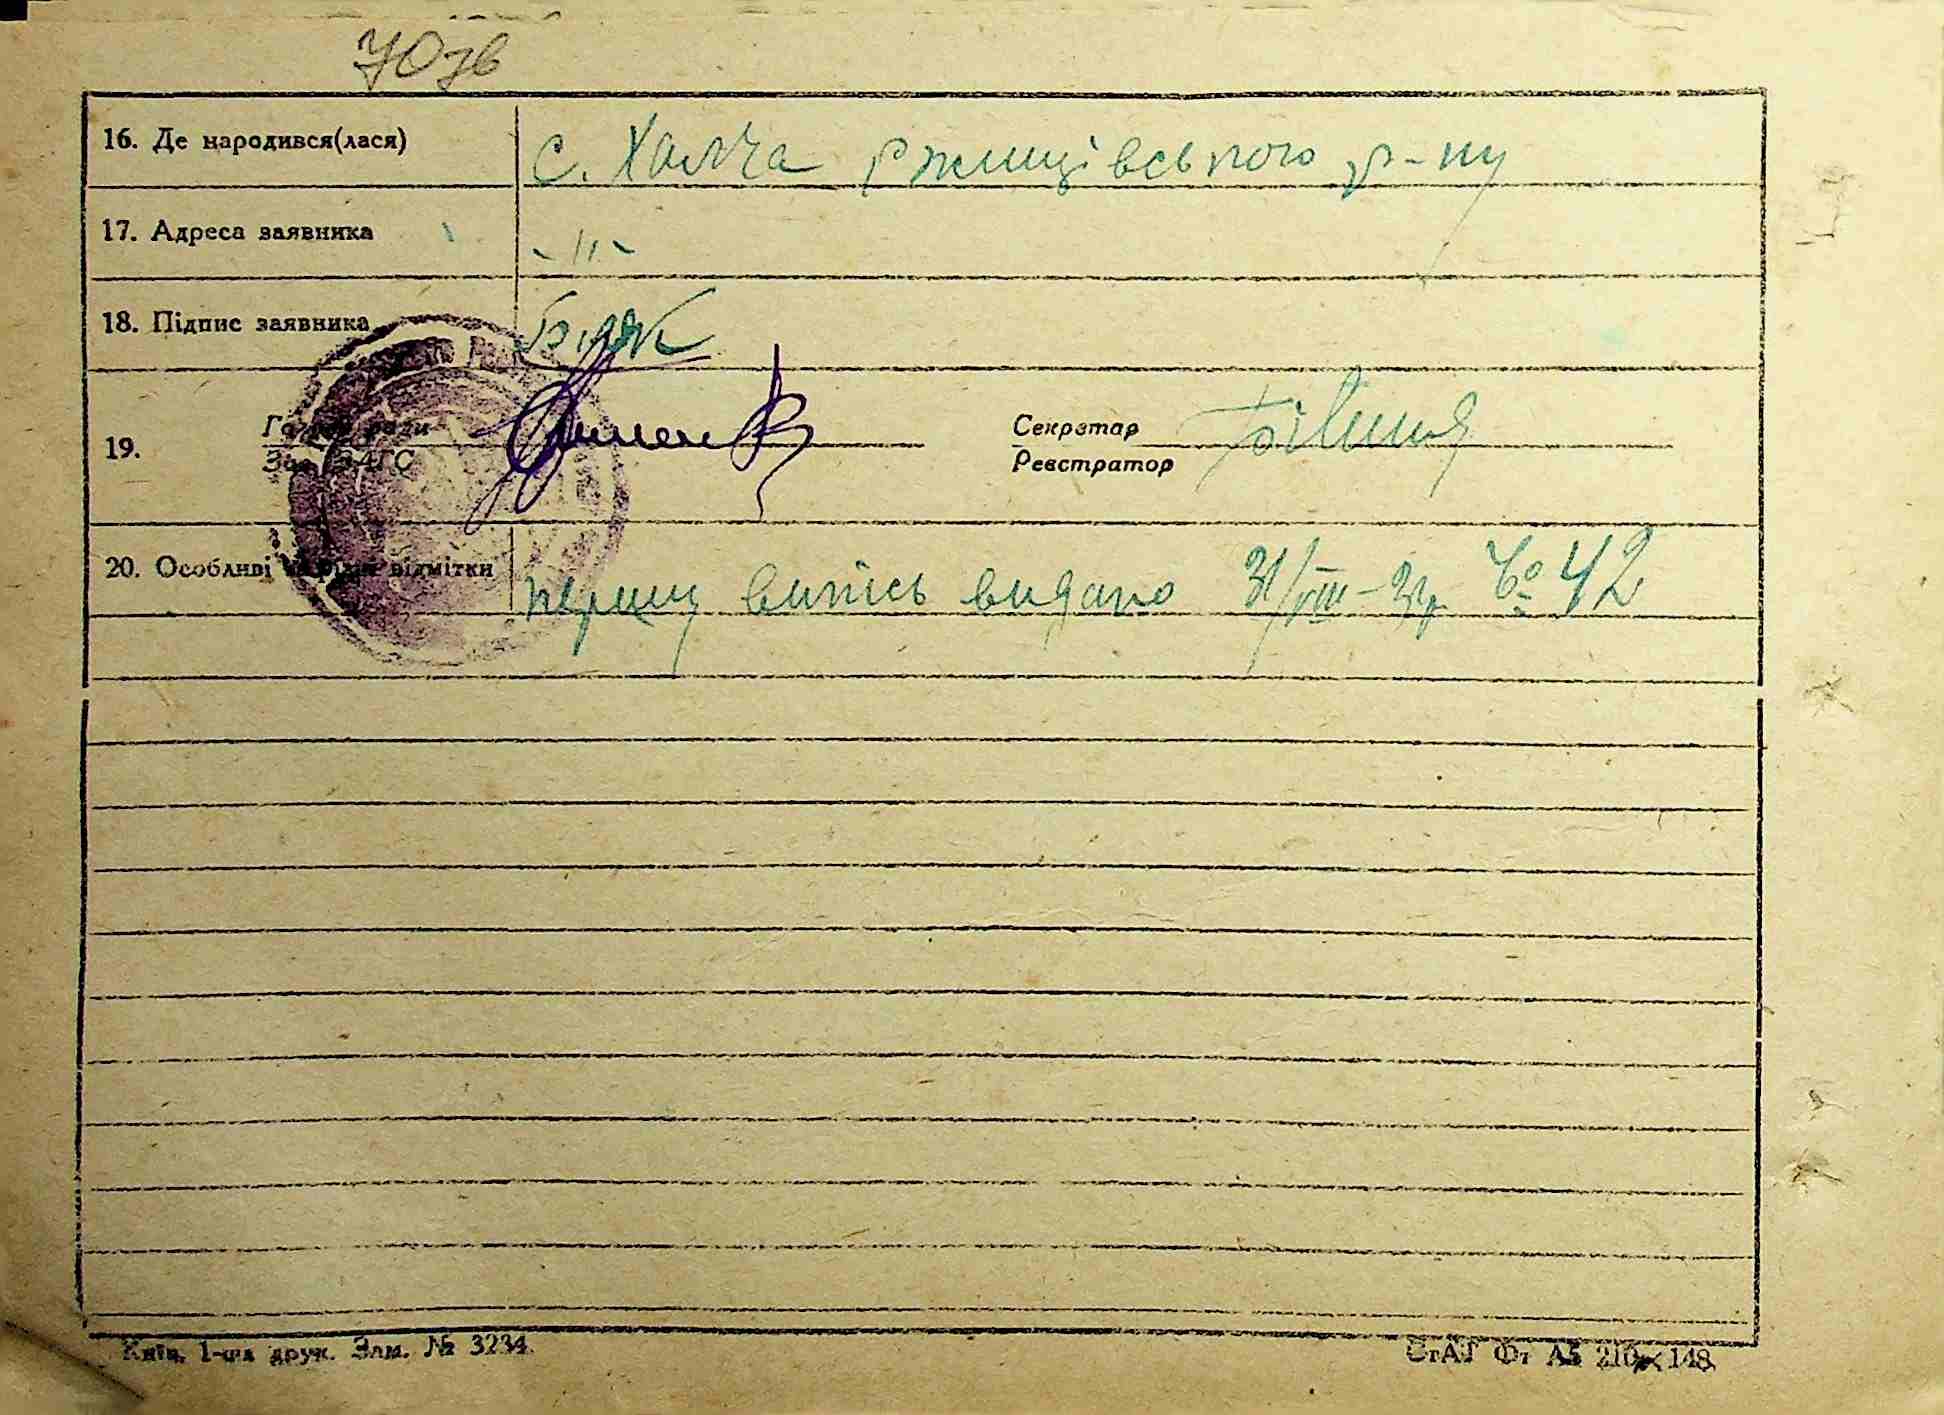 70зв
16. Де народився(лася) с. Халча Ржищівського р-ну
17. Адреса заявника -"-
18. Підпис заявника
Голова ради
Секретар
19.
Зав. ЗАГС
Реєстратор
20. Особливі відмітки першу випись видано 31/VIII-32р № 42
Київ, 1-ша друк. Зам. № 3234
СтАТ Фт А5 210×148